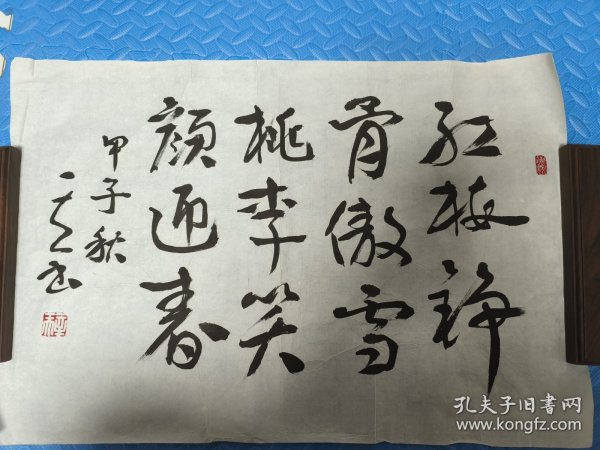 红梅铮
骨傲雪
桃李笑
颜迎春
甲子秋
书
孔夫子旧书网
www.kongfz.com